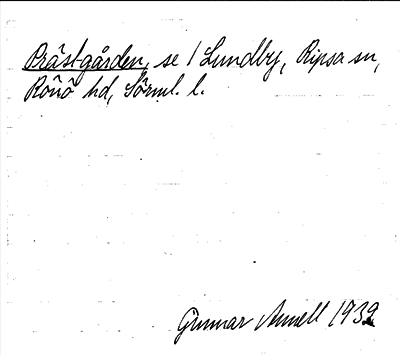 Prästgården, se 1 Lundby, Ripsa sn,
Rönö hd, Sörml. l.
Gunnar Annell 1932